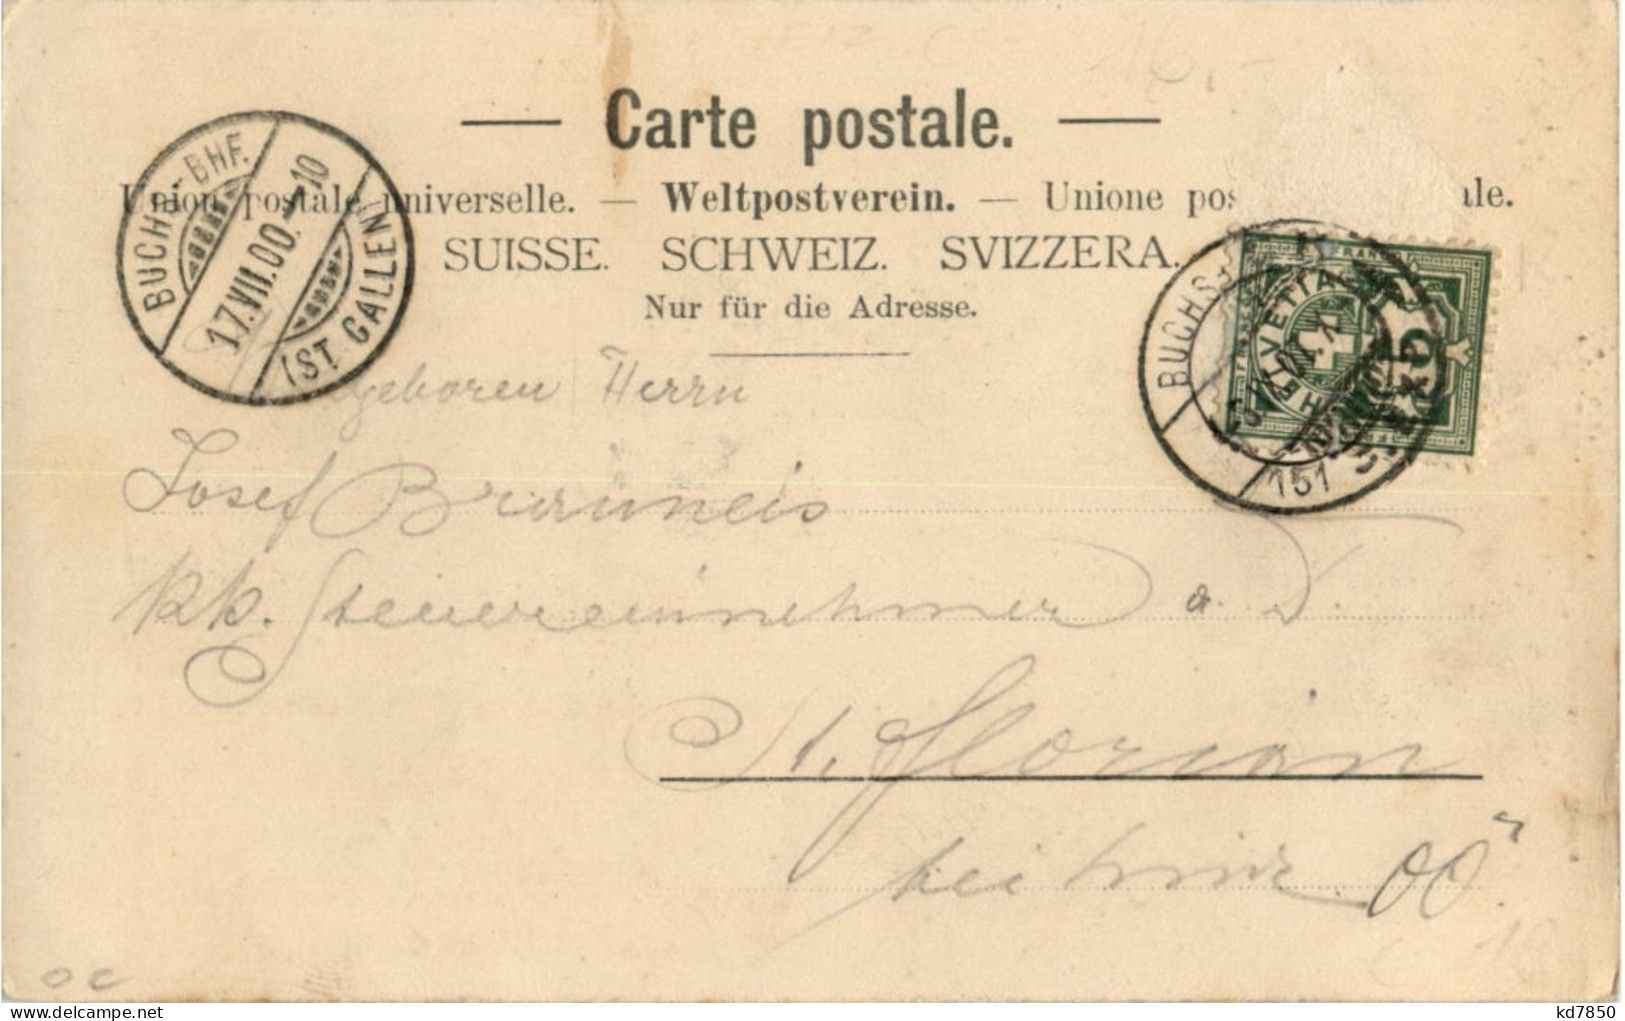 Carte postale.
Union postale universelle. — Weltpostverein. — Unione pos ale.
SUISSE. SCHWEIZ. SVIZZERA.
Nur für die Adresse.
BUCHS-BHF.
17.VII.00.-10
(ST. GALLEN)
BUCHS
HELVETIA
FRANCO
5
151
geboren Herrn
Josef
kk. Steuereinnehmer a. D.
St. Florian
bei Linz OÖ
16.-
oc
18
www.delcampe.net
kd7850